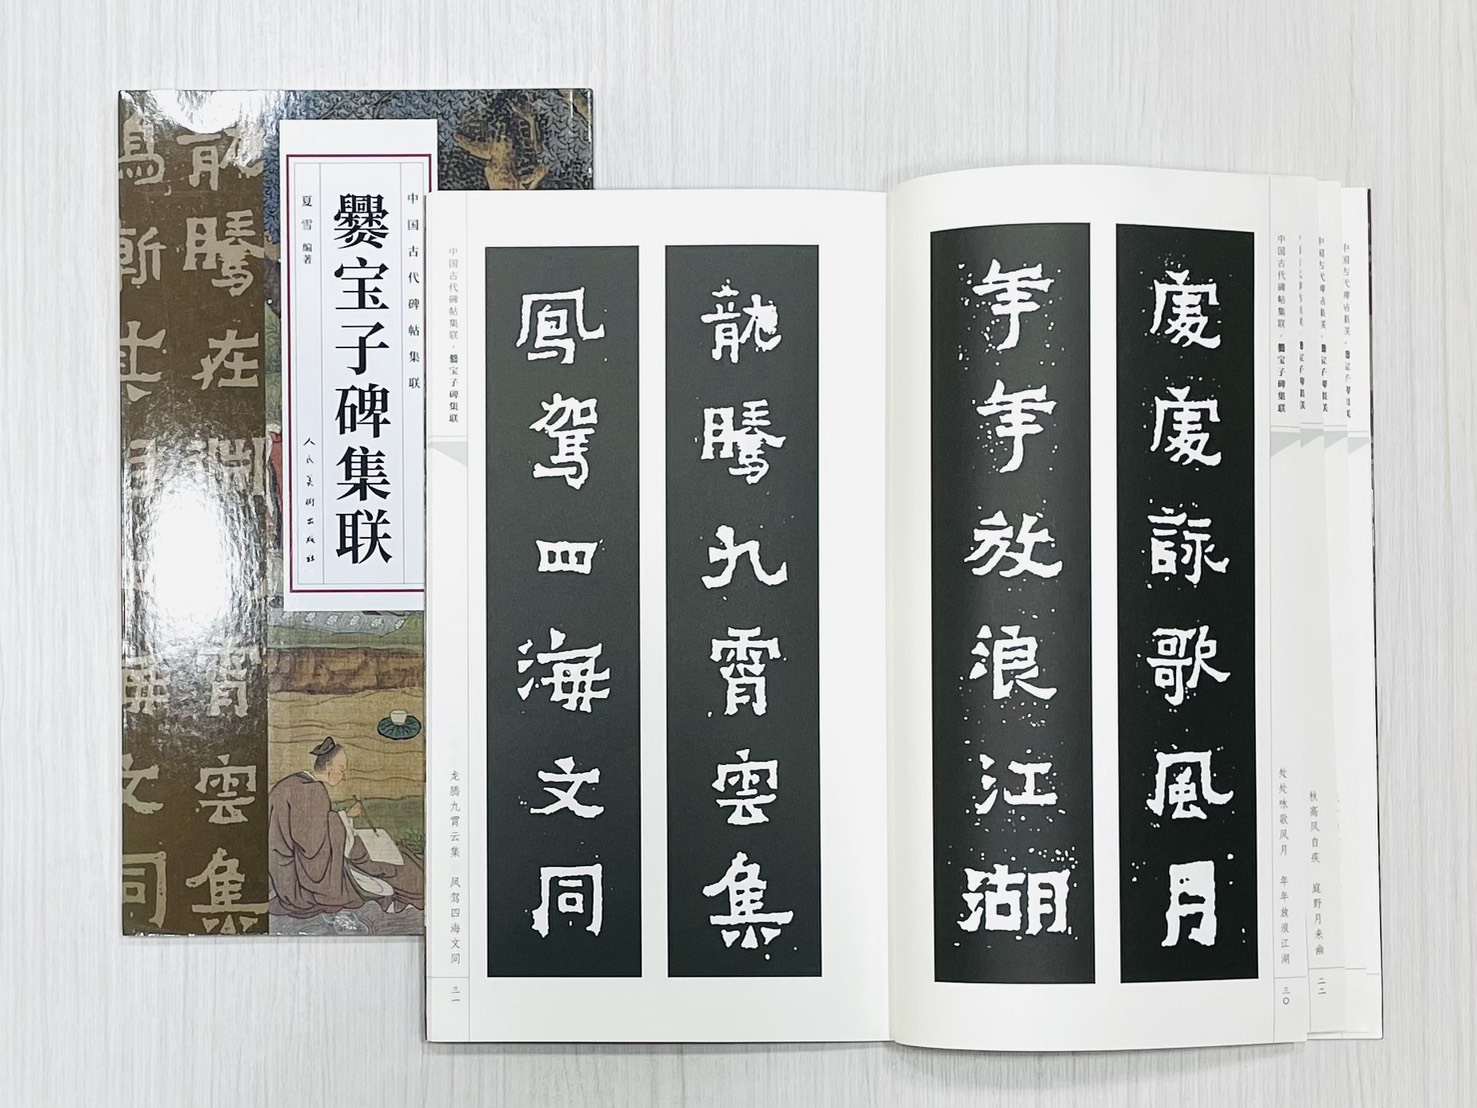 中国古代碑帖集联
爨宝子碑集联
夏雪 编著
人民美术出版社
龍騰在淵
霄雲集
漸
文同
中国古代碑帖集联·爨宝子碑集联
處處詠歌風月
年年放浪江湖
处处咏歌风月 年年放浪江湖
三〇
龍騰九霄雲集
鳳駕四海文同
中国古代碑帖集联·爨宝子碑集联
龙腾九霄云集 凤驾四海文同
三一
秋高风自疾 庭野月来幽
二二